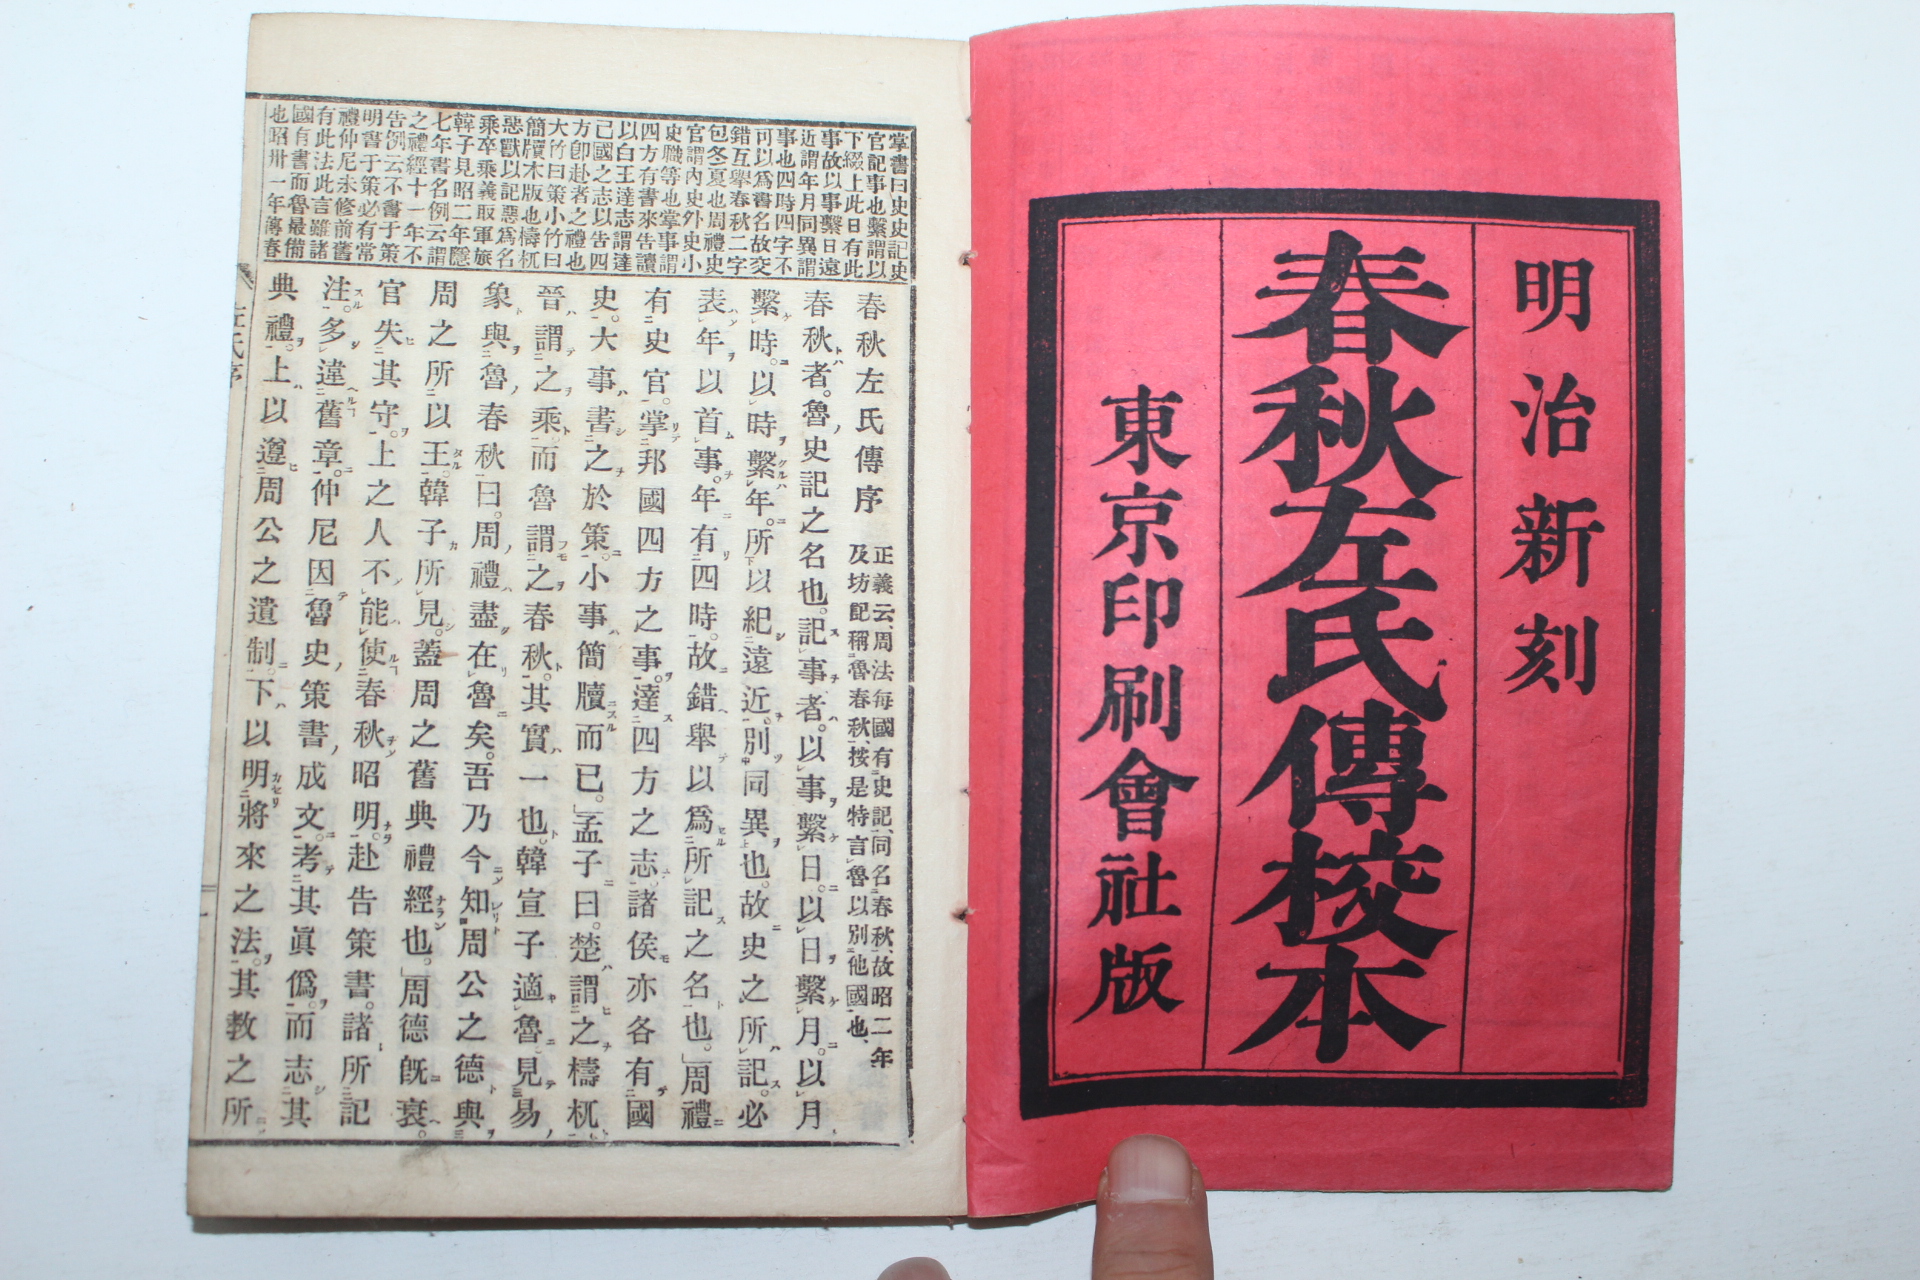 明治新刻
春秋左氏傳校本
東京印刷會社版
掌書曰史史記史
官記事也繫謂以
下綴上此日有此
事故以事繫日遠
近謂年月同異謂
事也四時四字不
可以爲書名故交
錯互舉春秋二字
包冬夏也周禮史
官謂內史外史小
史職等也掌事謂
四方有書來告讀
以白王達志謂達
己國之志以告四
方卽赴者之禮也
大竹曰策小竹曰
簡牘木版也檮杌
惡獸以記惡爲名
乘卒乘義取軍旅
韓子見昭二年隱
七年書名例云謂
之禮經十一年不
告例云不書于策
明書于策必有常
禮仲尼未修前舊
有此法此言雖諸
國有書而魯最備
也昭卅一年傳春
春秋左氏傳序
正義云、周法每國有史記、同名春秋、故昭二年
及坊記稱魯春秋、按是特言魯以別他國也、
春秋者。魯史記之名也。記事者。以事繫日。以日繫月。以月
繫時。以時繫年。所以紀遠近。別同異也。故史之所記。必
表年以首事。年有四時。故錯舉以爲所記之名也。」周禮
有史官。掌邦國四方之事。達四方之志。諸侯亦各有國
史。大事書之於策。小事簡牘而已。」孟子曰。楚謂之檮杌
晉謂之乘而魯謂之春秋。其實一也。韓宣子適魯見易
象與魯春秋曰。周禮盡在魯矣。吾乃今知周公之德與
周之所以王韓子所見。蓋周之舊典禮經也。」周德既衰。
官失其守。上之人不能使春秋昭明。赴告策書。諸所記
注。多違舊章。仲尼因魯史策書成文。考其眞僞。而志其
典禮。上以遵周公之遺制。下以明將來之法。其敎之所
左氏序